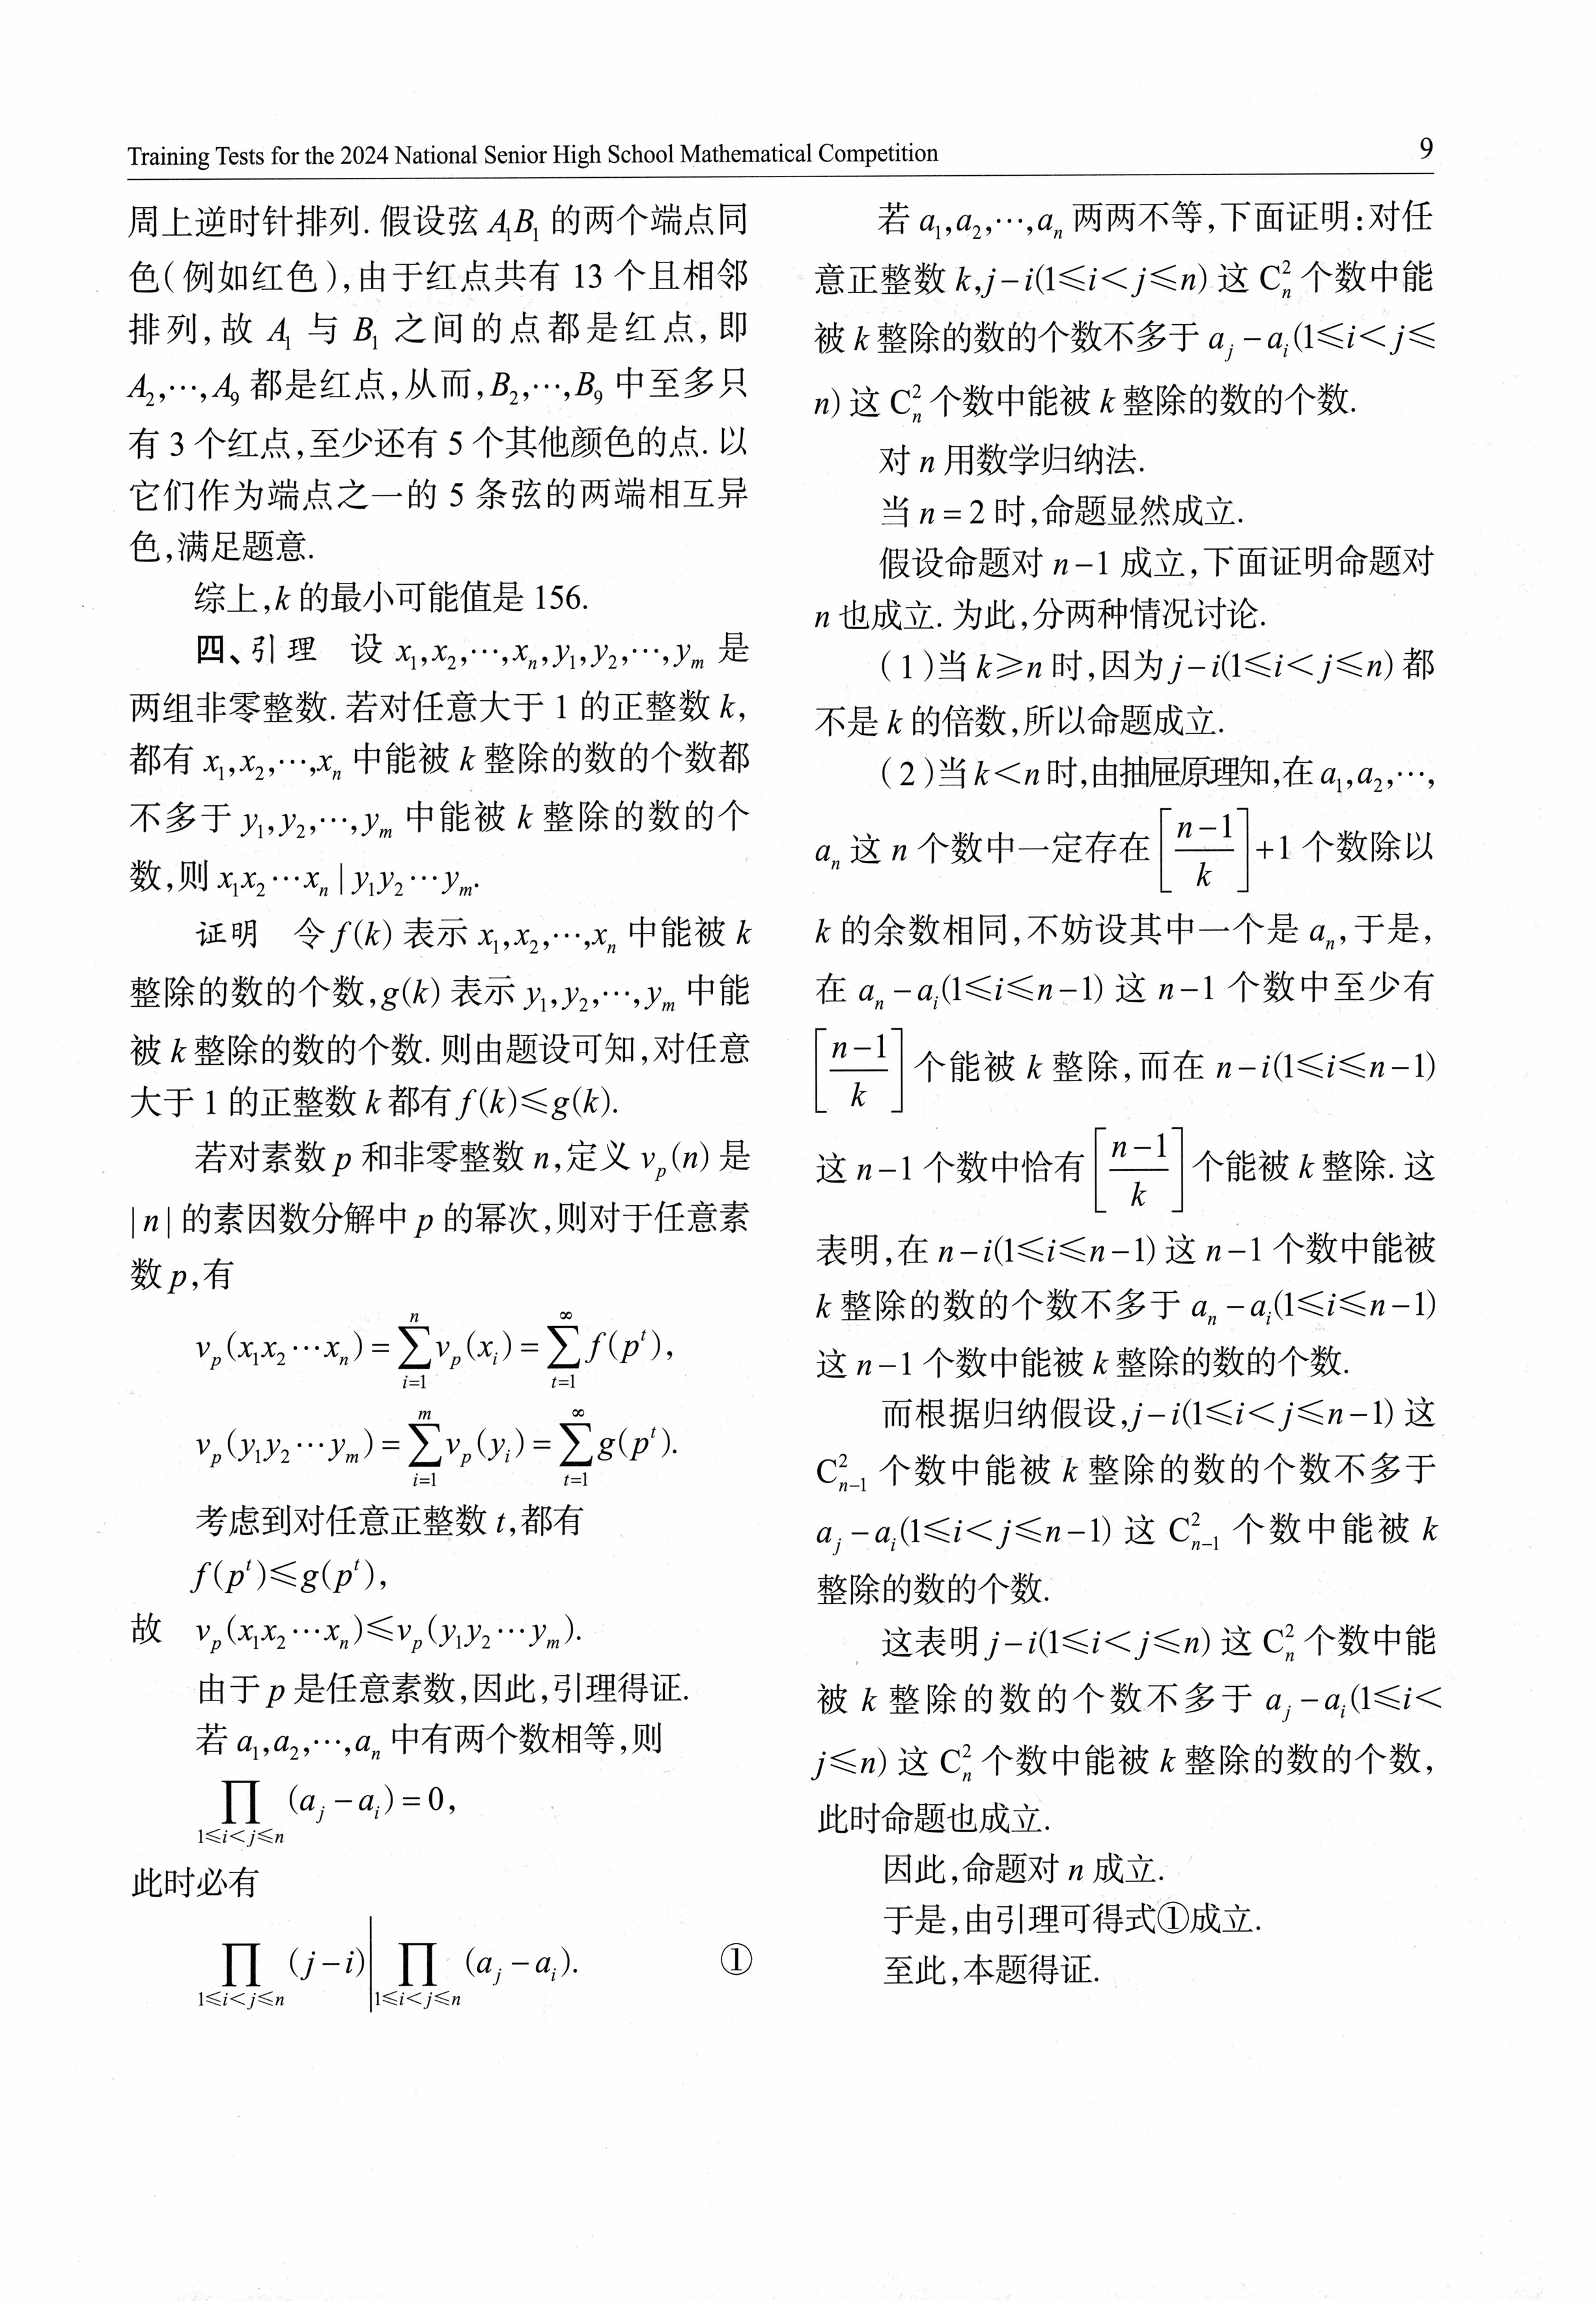 Training Tests for the 2024 National Senior High School Mathematical Competition 9
周上逆时针排列. 假设弦 A₁B₁ 的两个端点同
色(例如红色),由于红点共有 13 个且相邻
排列,故 A₁ 与 B₁ 之间的点都是红点,即
A₂,⋯,A₉ 都是红点,从而,B₂,⋯,B₉ 中至多只
有 3 个红点,至少还有 5 个其他颜色的点. 以
它们作为端点之一的 5 条弦的两端相互异
色,满足题意.
综上,k 的最小可能值是 156.
四、引理 设 x₁,x₂,⋯,xₙ,y₁,y₂,⋯,yₘ 是
两组非零整数. 若对任意大于 1 的正整数 k,
都有 x₁,x₂,⋯,xₙ 中能被 k 整除的数的个数都
不多于 y₁,y₂,⋯,yₘ 中能被 k 整除的数的个
数,则 x₁x₂⋯xₙ | y₁y₂⋯yₘ.
证明 令 f(k) 表示 x₁,x₂,⋯,xₙ 中能被 k
整除的数的个数,g(k) 表示 y₁,y₂,⋯,yₘ 中能
被 k 整除的数的个数. 则由题设可知,对任意
大于 1 的正整数 k 都有 f(k)≤g(k).
若对素数 p 和非零整数 n,定义 vₚ(n) 是
|n| 的素因数分解中 p 的幂次,则对于任意素
数 p,有
vₚ(x₁x₂⋯xₙ) = ∑_{i=1}^{n} vₚ(xᵢ) = ∑_{t=1}^{∞} f(pᵗ),
vₚ(y₁y₂⋯yₘ) = ∑_{i=1}^{m} vₚ(yᵢ) = ∑_{t=1}^{∞} g(pᵗ).
考虑到对任意正整数 t,都有
f(pᵗ)≤g(pᵗ),
故 vₚ(x₁x₂⋯xₙ)≤vₚ(y₁y₂⋯yₘ).
由于 p 是任意素数,因此,引理得证.
若 a₁,a₂,⋯,aₙ 中有两个数相等,则
∏_{1≤i<j≤n} (aⱼ−aᵢ) = 0,
此时必有
∏_{1≤i<j≤n} (j−i) | ∏_{1≤i<j≤n} (aⱼ−aᵢ). ①
若 a₁,a₂,⋯,aₙ 两两不等,下面证明:对任
意正整数 k,j−i(1≤i<j≤n) 这 C²ₙ 个数中能
被 k 整除的数的个数不多于 aⱼ−aᵢ(1≤i<j≤
n) 这 C²ₙ 个数中能被 k 整除的数的个数.
对 n 用数学归纳法.
当 n=2 时,命题显然成立.
假设命题对 n−1 成立,下面证明命题对
n 也成立. 为此,分两种情况讨论.
(1)当 k≥n 时,因为 j−i(1≤i<j≤n) 都
不是 k 的倍数,所以命题成立.
(2)当 k<n 时,由抽屉原理知,在 a₁,a₂,⋯,
aₙ 这 n 个数中一定存在 [(n−1)/k]+1 个数除以
k 的余数相同,不妨设其中一个是 aₙ,于是,
在 aₙ−aᵢ(1≤i≤n−1) 这 n−1 个数中至少有
[(n−1)/k] 个能被 k 整除,而在 n−i(1≤i≤n−1)
这 n−1 个数中恰有 [(n−1)/k] 个能被 k 整除. 这
表明,在 n−i(1≤i≤n−1) 这 n−1 个数中能被
k 整除的数的个数不多于 aₙ−aᵢ(1≤i≤n−1)
这 n−1 个数中能被 k 整除的数的个数.
而根据归纳假设,j−i(1≤i<j≤n−1) 这
C²ₙ₋₁ 个数中能被 k 整除的数的个数不多于
aⱼ−aᵢ(1≤i<j≤n−1) 这 C²ₙ₋₁ 个数中能被 k
整除的数的个数.
这表明 j−i(1≤i<j≤n) 这 C²ₙ 个数中能
被 k 整除的数的个数不多于 aⱼ−aᵢ(1≤i<
j≤n) 这 C²ₙ 个数中能被 k 整除的数的个数,
此时命题也成立.
因此,命题对 n 成立.
于是,由引理可得式①成立.
至此,本题得证.